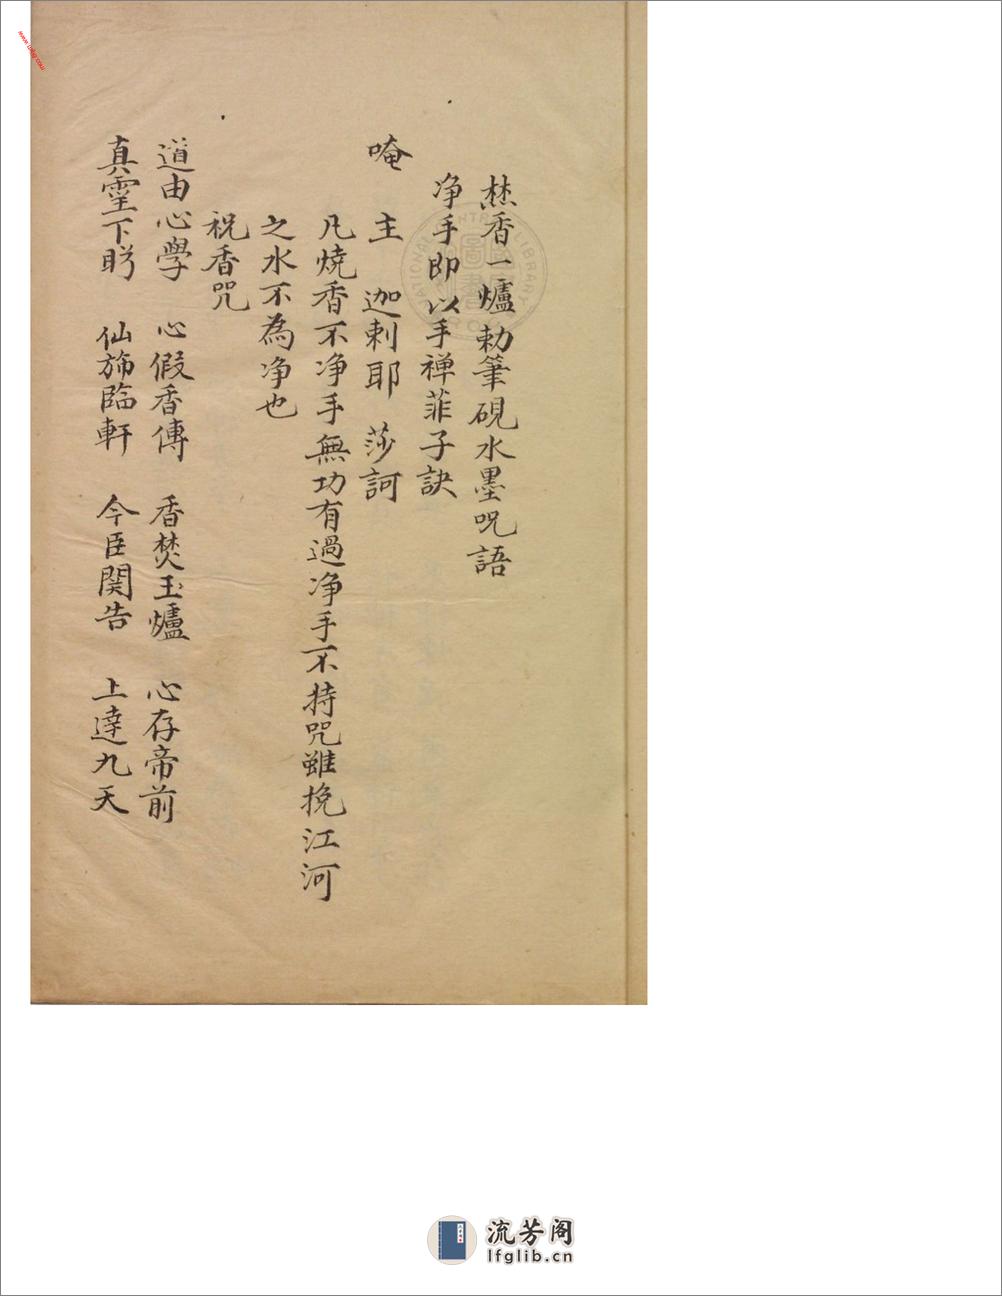 焚香一爐勅筆硯水墨呪語
净手即以手禅菲子訣
唵 主 迦刺耶 莎訶
凡燒香不净手無功有過净手不持咒雖挽江河
之水不為净也
祝香咒
道由心學 心假香傳 香焚玉爐 心存帝前
真靈下盻 仙斾臨軒 今臣関告 上達九天
NATIONAL CENTRAL LIBRARY
流芳阁
lfglib.cn